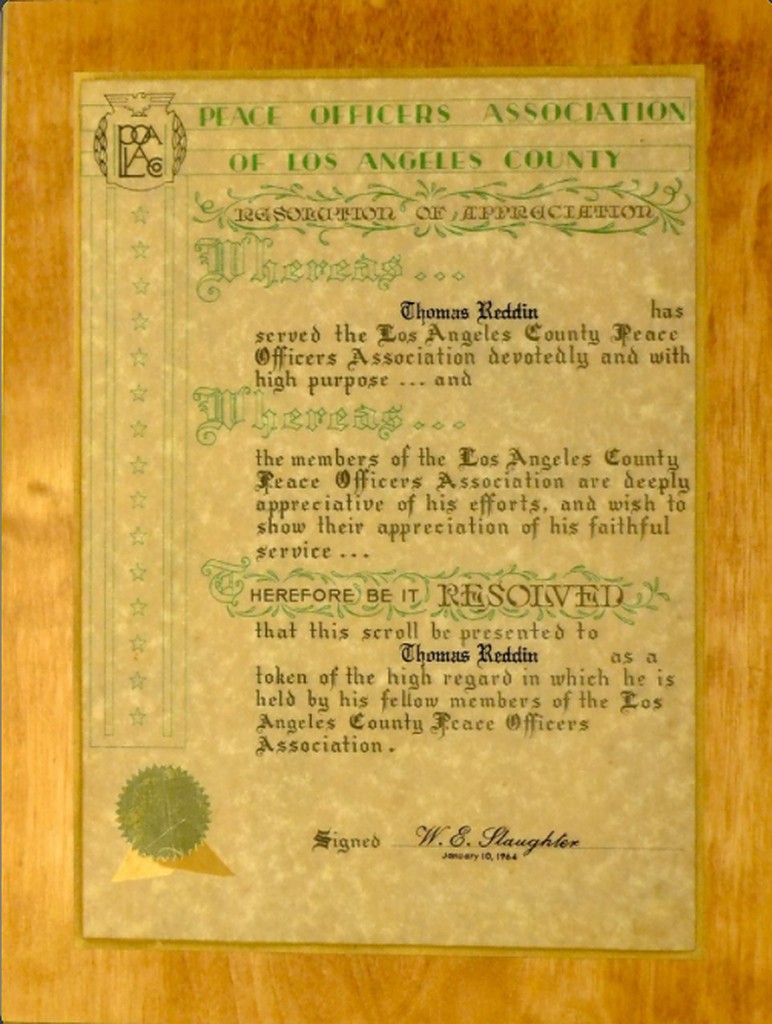 POA
LACo
PEACE OFFICERS ASSOCIATION
OF LOS ANGELES COUNTY
RESOLUTION OF APPRECIATION
Whereas...
Thomas Reddin has
served the Los Angeles County Peace
Officers Association devotedly and with
high purpose ... and
Whereas...
the members of the Los Angeles County
Peace Officers Association are deeply
appreciative of his efforts, and wish to
show their appreciation of his faithful
service ...
THEREFORE BE IT RESOLVED
that this scroll be presented to
Thomas Reddin as a
token of the high regard in which he is
held by his fellow members of the Los
Angeles County Peace Officers
Association.
Signed W. E. Slaughter
January 10, 1964